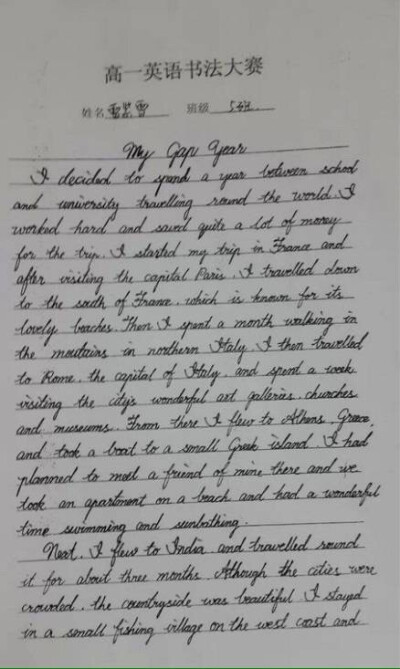 高一英语书法大赛
姓名 雪 班级 5班.
My Gap Year
I decided to spend a year between school
and university travelling round the world. I
worked hard and saved quite a lot of money
for the trip. I started my trip in France and
after visiting the capital Paris. I travelled down
to the south of France. which is known for its
lovely beaches. Then I spent a month walking in
the moutains in northern Italy. I then travelled
to Rome. the capital of Italy. and spent a week
visiting the city's wonderful art galleries. churches
and museums. From there I flew to Athens. Greece.
and took a boat to a small Greek island. I had
planned to meet a friend of mine there and we
took an apartment on a beach and had a wonderful
time swimming and sunbithing.
Next. I flew to India and travelled round
it for about three months. Athough the cities were
crowded. the countryside was beautiful. I stayed
in a small fishing village on the west coast and